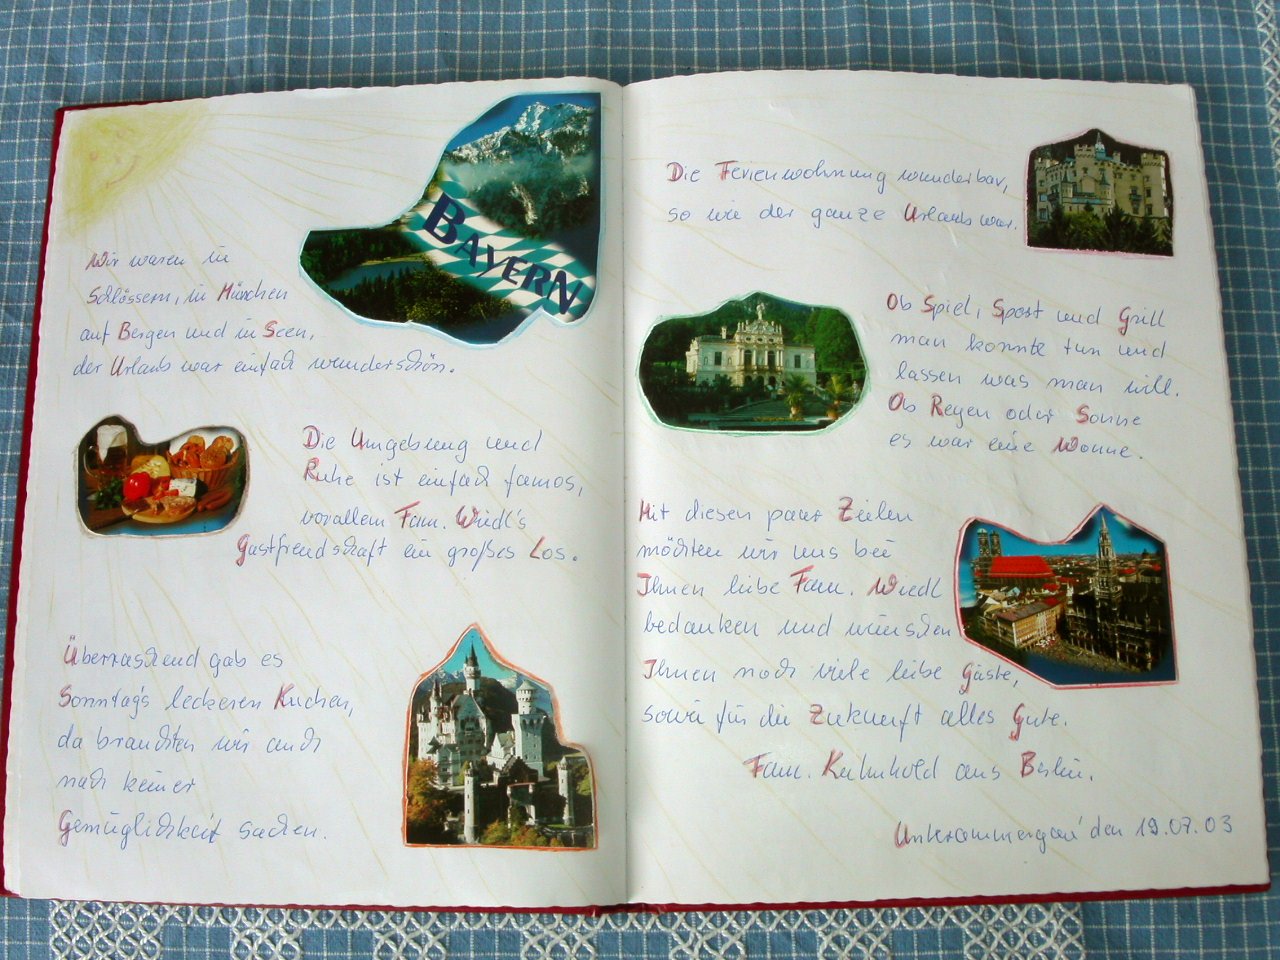 BAYERN
Wir waren in
Schlössern, in München
auf Bergen und in Seen,
der Urlaub war einfach wunderschön.
Die Umgebung und
Ruhe ist einfach famos,
vorallem Fam. Wiedl's
Gastfreundschaft ein großes Los.
Überraschend gab es
Sonntag's leckeren Kuchen,
da brauchten wir auch
nach keiner
Gemüglichkeit suchen.
Die Ferienwohnung wunderbar,
so wie der ganze Urlaub war.
Ob Spiel, Sport und Grill
man konnte tun und
lassen was man will.
Ob Regen oder Sonne
es war eine Wonne.
Mit diesen paar Zeilen
möchten wir uns bei
Ihnen liebe Fam. Wiedl
bedanken und wünschen
Ihnen noch viele liebe Gäste,
sowie für die Zukunft alles Gute.
Fam. aus Berlin.
Unterammergau den 19.07.03